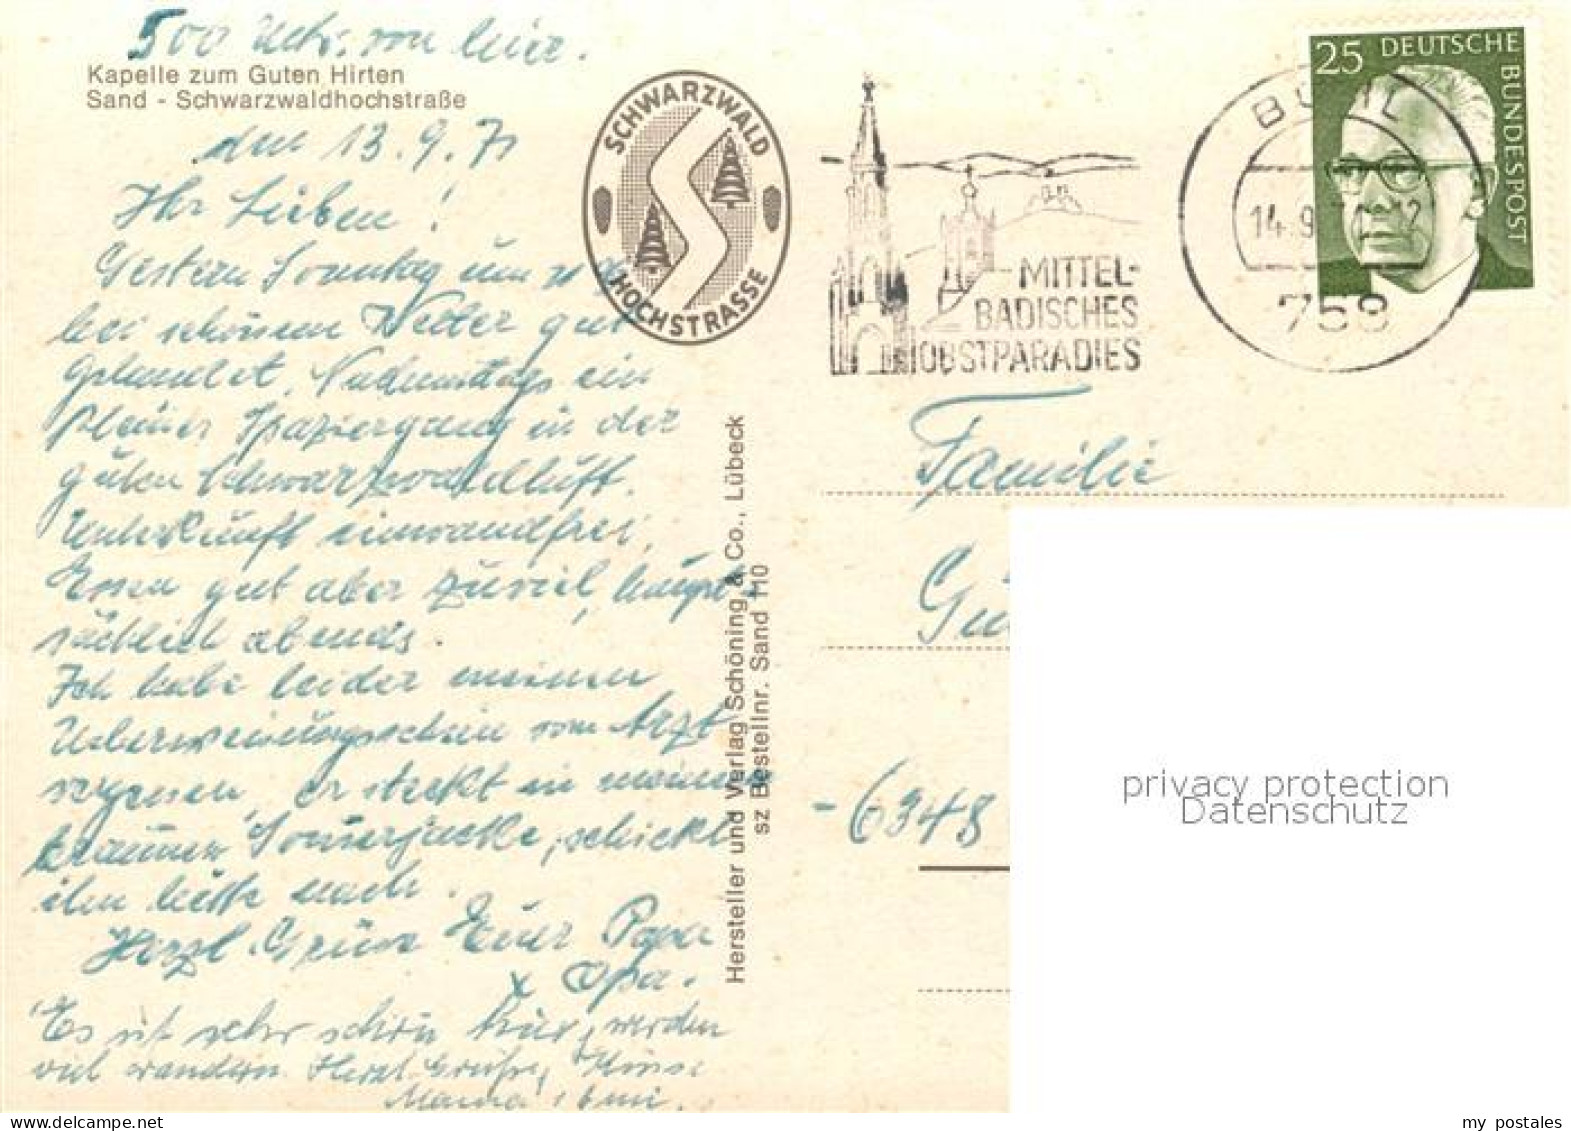 500 Mtr. von hier.
Kapelle zum Guten Hirten
Sand - Schwarzwaldhochstraße
den 13.9.71
Ihr Lieben!
Gestern Sonntag um
bei schönem Wetter gut
gelandet, Nachmittags ein
kleiner Spaziergang in der
guten Schwarzwaldluft.
Unterkunft einwandfrei,
Essen gut aber zuviel, haupt-
sächlich abends.
Ich habe leider meinen
Ueberweisungsschein vom Arzt
vergessen, er steckt in meiner
braunen Sommerjacke, schickt
ihn bitte nach.
Herzl. Grüße Euer Papa
x Opa.
Es ist sehr schön hier, werden
viel wandern. Herzl. Grüße,
Mama
SCHWARZWALD
HOCHSTRASSE
MITTEL-
BADISCHES
OBSTPARADIES
BÜHL
14.9.71
758
25 DEUTSCHE BUNDESPOST
Hersteller und Verlag Schöning & Co., Lübeck
sz Bestellnr. Sand 110
Familie
Gü
-6348
privacy protection
Datenschutz
my postales